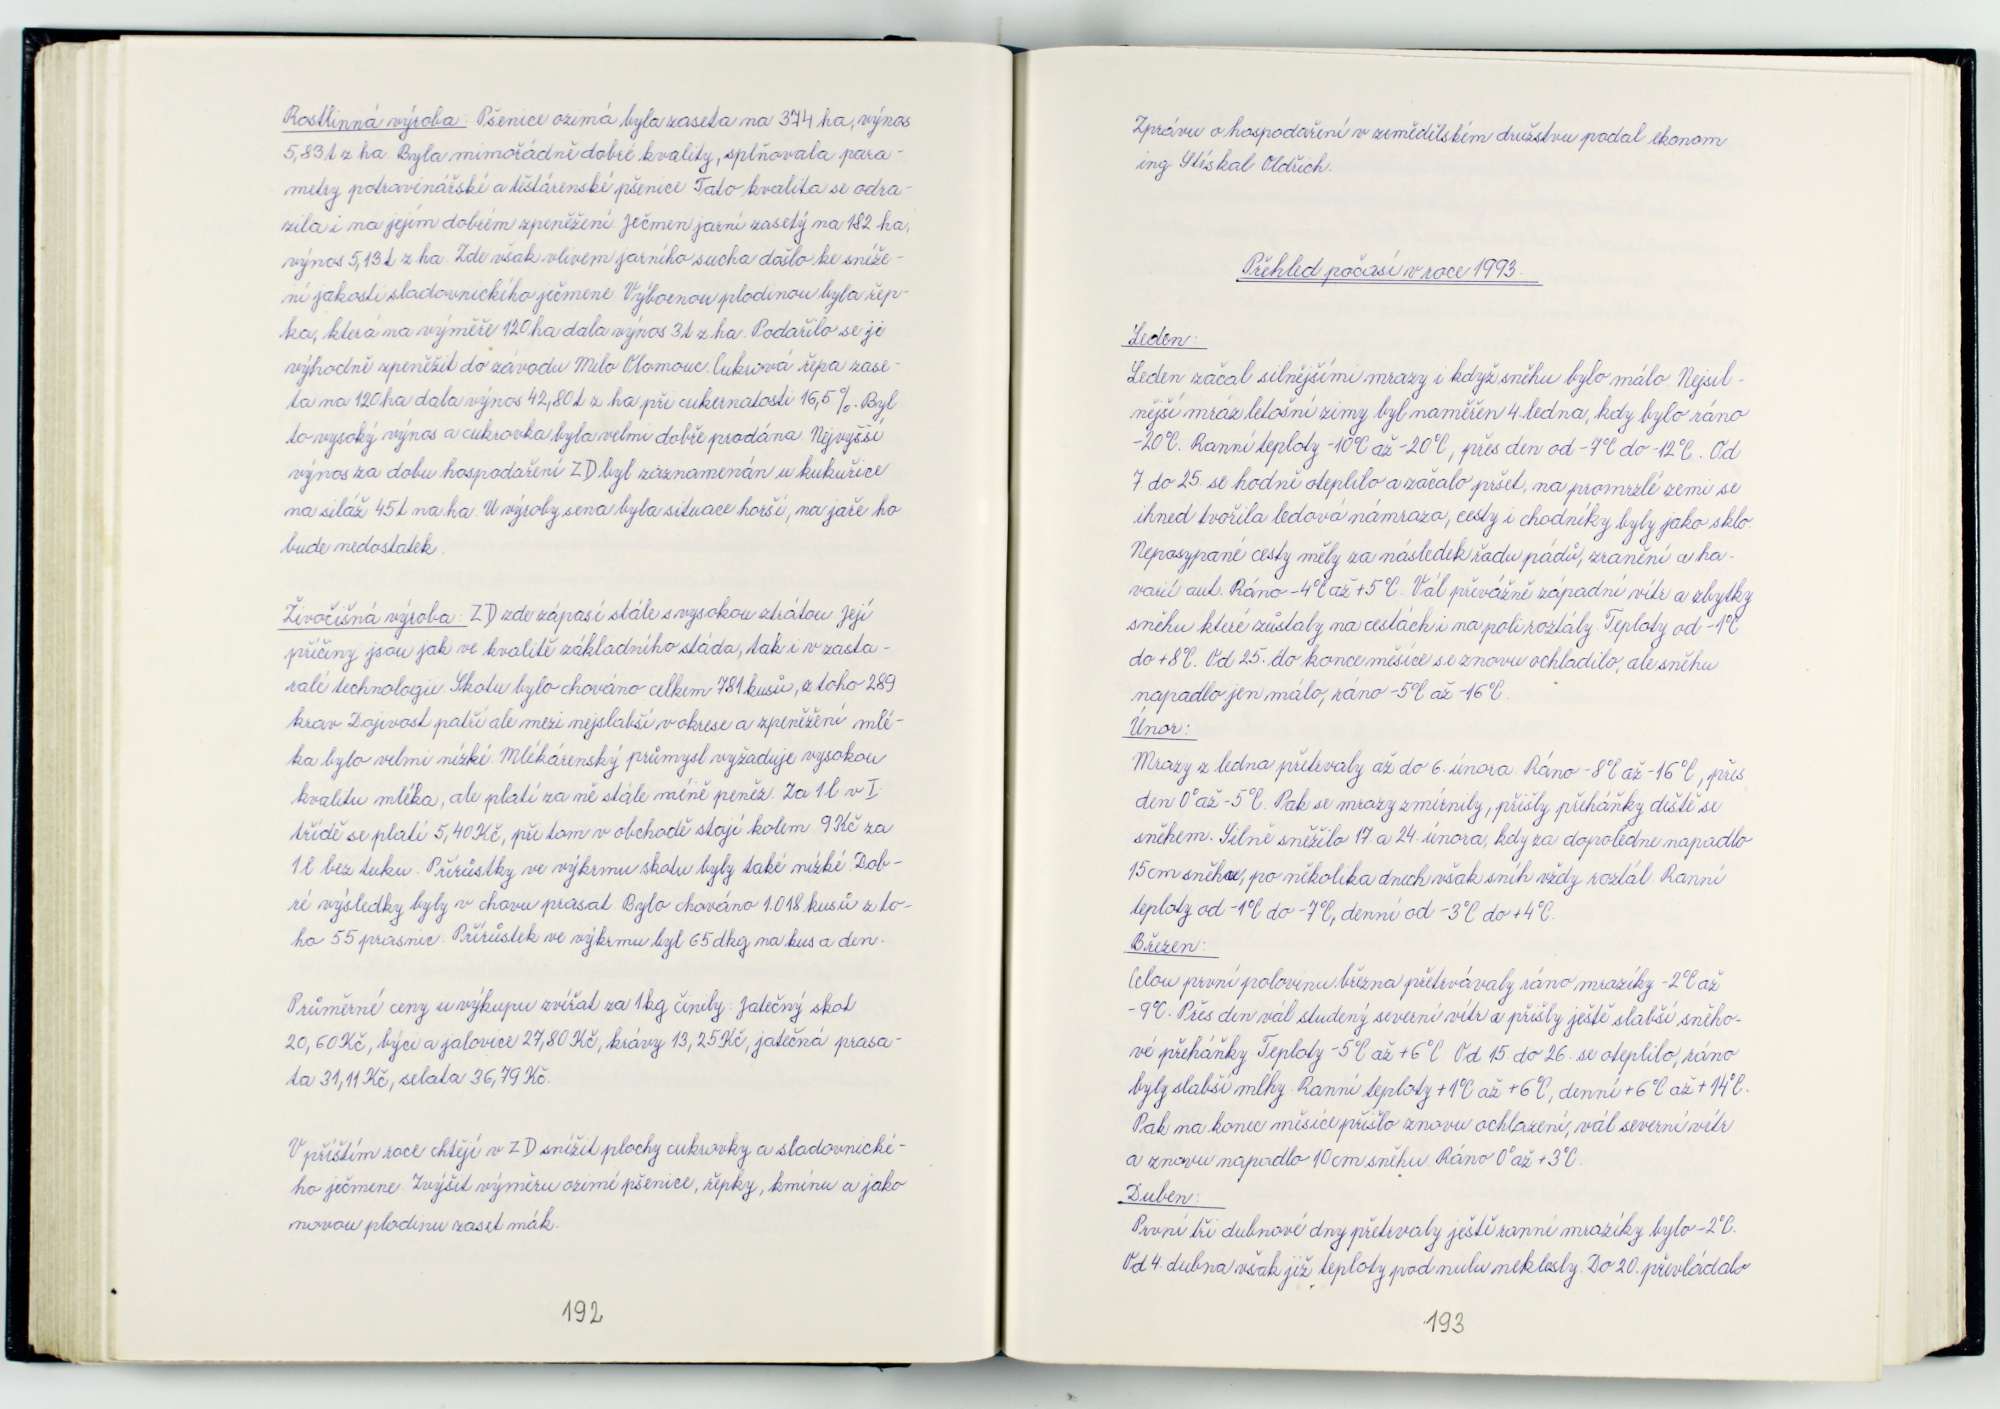 Rostlinná výroba: Pšenice ozimá byla zaseta na 374 ha, výnos
5,83 t z ha. Byla mimořádně dobré kvality, splňovala para-
metry potravinářské a těstárenské pšenice. Tato kvalita se odra-
zila i na jejím dobrém zpeněžení. Ječmen jarní zasetý na 182 ha,
výnos 5,13 t z ha. Zde však vlivem jarního sucha došlo ke sníže-
ní jakosti sladovnického ječmene. Výbornou plodinou byla řep-
ka, která na výměře 120 ha dala výnos 3 t z ha. Podařilo se ji
výhodně zpeněžit do závodu Milo Olomouc. Cukrová řepa zase-
ta na 120 ha dala výnos 42,80 t z ha při cukernatosti 16,5 %. Byl
to vysoký výnos a cukrovka byla velmi dobře prodána. Nejvyšší
výnos za dobu hospodaření ZD byl zaznamenán u kukuřice
na siláž 45 t na ha. U výroby sena byla situace horší, na jaře ho
bude nedostatek.
Živočišná výroba: ZD zde zápasí stále s vysokou ztrátou. Její
příčiny jsou jak ve kvalitě základního stáda, tak i v zasta-
ralé technologii. Skotu bylo chováno celkem 781 kusů, z toho 289
krav. Dojivost patří ale mezi nejslabší v okrese a zpeněžení mlé-
ka bylo velmi nízké. Mlékárenský průmysl vyžaduje vysokou
kvalitu mléka, ale platí za ně stále méně peněz. Za 1 l v I.
třídě se platí 5,40 Kč, při tom v obchodě stojí kolem 9 Kč za
1 l bez tuku. Přírůstky ve výkrmu skotu byly také nízké. Dob-
ré výsledky byly v chovu prasat. Bylo chováno 1.018 kusů z to-
ho 55 prasnic. Přírůstek ve výkrmu byl 65 dkg na kus a den.
Průměrné ceny u výkupu zvířat za 1 kg činily: Jatečný skot
20,60 Kč, býci a jalovice 27,80 Kč, krávy 13,25 Kč, jatečná prasa-
ta 31,11 Kč, selata 36,79 Kč.
V příštím roce chtějí v ZD snížit plochy cukrovky a sladovnické-
ho ječmene. Zvýšit výměru ozimé pšenice, řepky, kmínu a jako
novou plodinu zaset mák.
192
Zprávu o hospodaření v zemědělském družstvu podal ekonom
ing Stískal Oldřich.
Přehled počasí v roce 1993.
Leden:
Leden začal silnějšími mrazy i když sněhu bylo málo. Nejsil-
nější mráz letošní zimy byl naměřen 4. ledna, kdy bylo ráno
-20°C. Ranní teploty -10°C až -20°C, přes den od -7°C do -12°C. Od
7 do 25. se hodně oteplilo a začalo pršet, na promrzlé zemi se
ihned tvořila ledová námraza, cesty i chodníky byly jako sklo.
Neposypané cesty měly za následek řadu pádů, zranění a ha-
varií aut. Ráno -4°C až +5°C. Vál převážně západní vítr a zbytky
sněhu které zůstaly na cestách i na poli roztály. Teploty od -1°C
do +8°C. Od 25. do konce měsíce se znovu ochladilo, ale sněhu
napadlo jen málo, ráno -5°C až -16°C.
Únor:
Mrazy z ledna přetrvaly až do 6. února. Ráno -8°C až -16°C, přes
den 0° až -5°C. Pak se mrazy zmírnily, přišly přeháňky deště se
sněhem. Silně sněžilo 17. a 24. února, kdy za dopoledne napadlo
15 cm sněhu, po několika dnech však sníh vždy roztál. Ranní
teploty od -1°C do -7°C, denní od -3°C do +4°C.
Březen:
Celou první polovinu března přetrvávaly ráno mrazíky -2°C až
-9°C. Přes den vál studený severní vítr a přišly ještě slabší sněho-
vé přeháňky. Teploty -5°C až +6°C. Od 15. do 26. se oteplilo, ráno
byly slabší mlhy. Ranní teploty +1°C až +6°C, denní +6°C až +14°C.
Pak na konec měsíce přišlo znovu ochlazení, vál severní vítr
a znovu napadlo 10 cm sněhu. Ráno 0° až +3°C.
Duben:
První tři dubnové dny přetrvaly ještě ranní mrazíky bylo -2°C.
Od 4. dubna však již teploty pod nulu neklesly. Do 20. převládalo
193